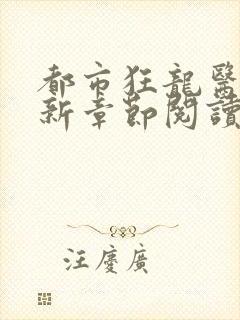 都市狂龍醫
新章節閱讀
汪慶廣